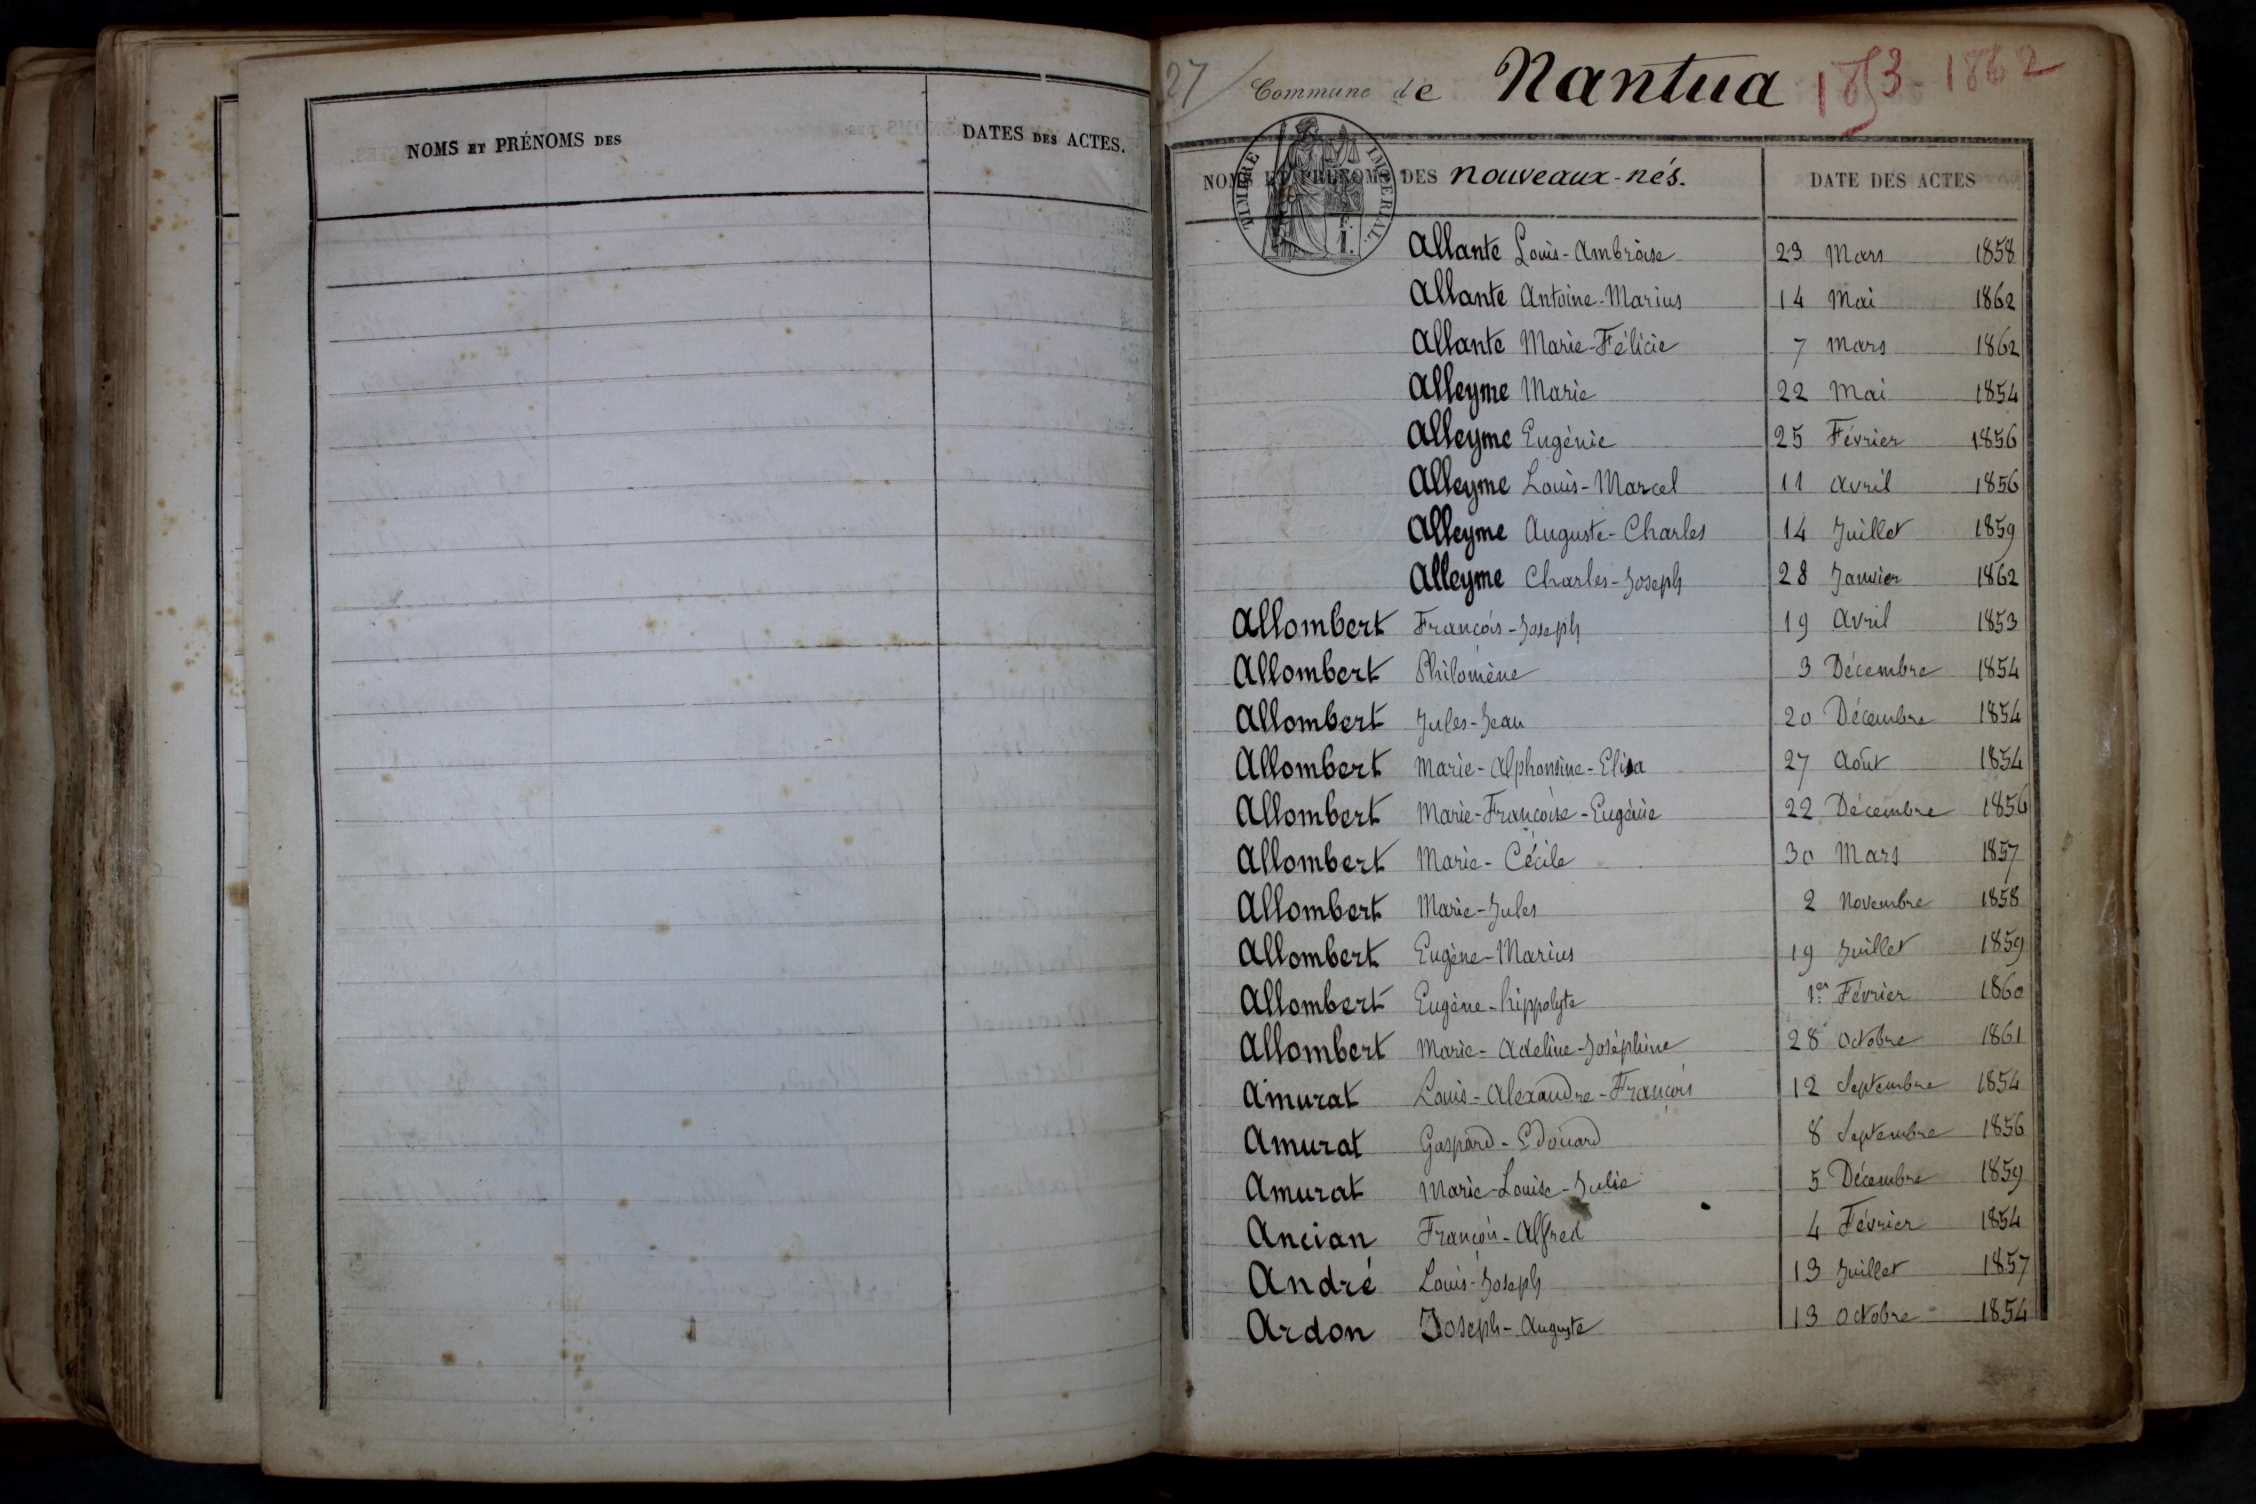 NOMS ET PRÉNOMS DES
DATES DES ACTES.
27
Commune de Nantua 1853-1862
TIMBRE IMPERIAL.
NOMS ET PRÉNOMS DES nouveaux-nés.
DATE DES ACTES
Allante Louis-Ambroise 23 Mars 1858
Allante Antoine-Marius 14 Mai 1862
Allante Marie-Félicie 7 Mars 1862
Alleyme Marie 22 Mai 1854
Alleyme Eugénie 25 Février 1856
Alleyme Louis-Marcel 11 Avril 1856
Alleyme Auguste-Charles 14 Juillet 1859
Alleyme Charles-Joseph 28 Janvier 1862
Allombert François-Joseph 19 Avril 1853
Allombert Philomène 3 Décembre 1854
Allombert Jules-Jean 20 Décembre 1854
Allombert Marie-Alphonsine-Elisa 27 Août 1854
Allombert Marie-Françoise-Eugénie 22 Décembre 1856
Allombert Marie-Cécile 30 Mars 1857
Allombert Marie-Jules 2 Novembre 1858
Allombert Eugène-Marius 19 Juillet 1859
Allombert Eugène-hippolyte 1er Février 1860
Allombert Marie-Adeline-Joséphine 28 Octobre 1861
Amurat Louis-Alexandre-François 12 Septembre 1854
Amurat Gaspard-Edouard 8 Septembre 1856
Amurat Marie-Louise-Julie 5 Décembre 1859
Ancian François-Alfred 4 Février 1854
André Louis-Joseph 13 Juillet 1857
Ardon Joseph-Auguste 13 Octobre 1854